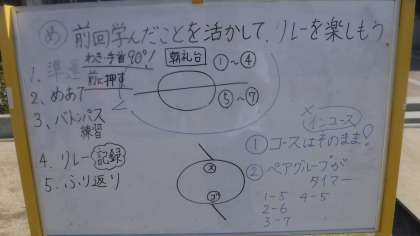 め 前回学んだことを活かして、リレーを楽しもう。
わき・手首90°!
前に押す
1. 準運
2. めあて
3. バトンパス
練習
4. リレー 記録
5. ふり返り
朝礼台
①~④
⑤~⑦
×
インコース
①コースはそのまま!
②ペアグループが
タイマー
1-5 4-5
2-6
3-7